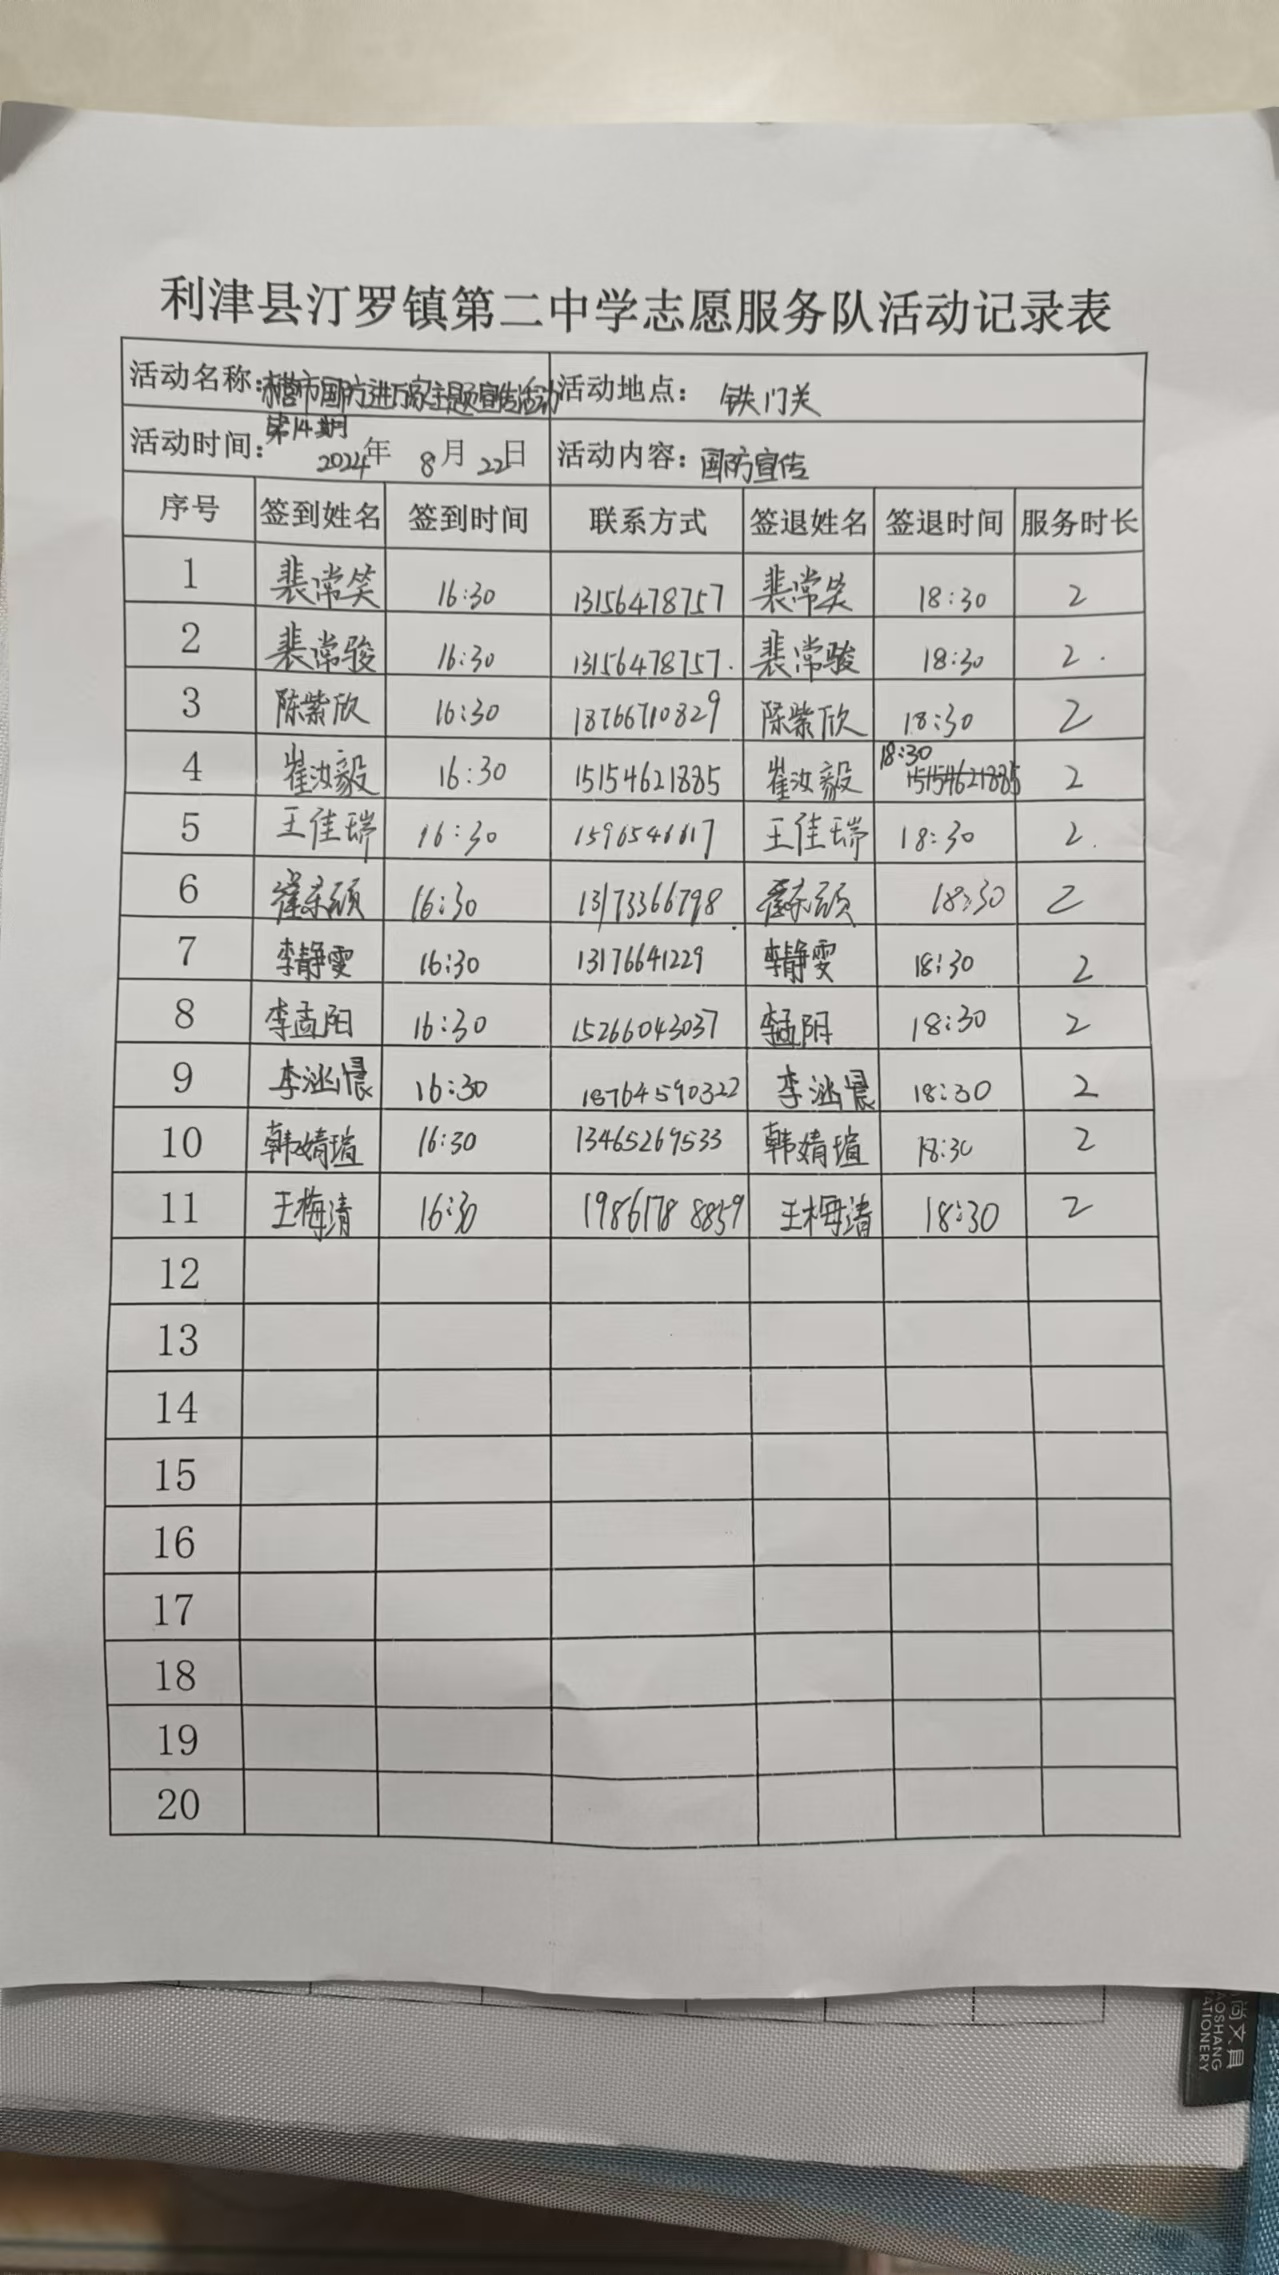 利津县汀罗镇第二中学志愿服务队活动记录表
活动名称：东营市国防进万家主题宣传活动 活动地点： 铁门关
第14期
活动时间： 2024年 8月 22日 活动内容：国防宣传
序号 签到姓名 签到时间 联系方式 签退姓名 签退时间 服务时长
1 裴常笑 16:30 13156478757 裴常笑 18:30 2
2 裴常骏 16:30 13156478757. 裴常骏 18:30 2.
3 陈紫欣 16:30 18766710829 陈紫欣 18:30 2
4 崔汝毅 16:30 15154621885 崔汝毅 18:30 15154621885 2
5 王佳瑞 16:30 1596546617 王佳瑞 18:30 2.
6 16:30 13173366798 18:30 2
7 李静雯 16:30 13176641229 李静雯 18:30 2
8 李孟阳 16:30 15266043037 李孟阳 18:30 2
9 李涵晨 16:30 18764590322 李涵晨 18:30 2
10 韩婧瑄 16:30 13465269533 韩婧瑄 18:30 2
11 王梅清 16:30 19861788859 王梅清 18:30 2
12
13
14
15
16
17
18
19
20
尚文具
AOSHANG
TATIONERY